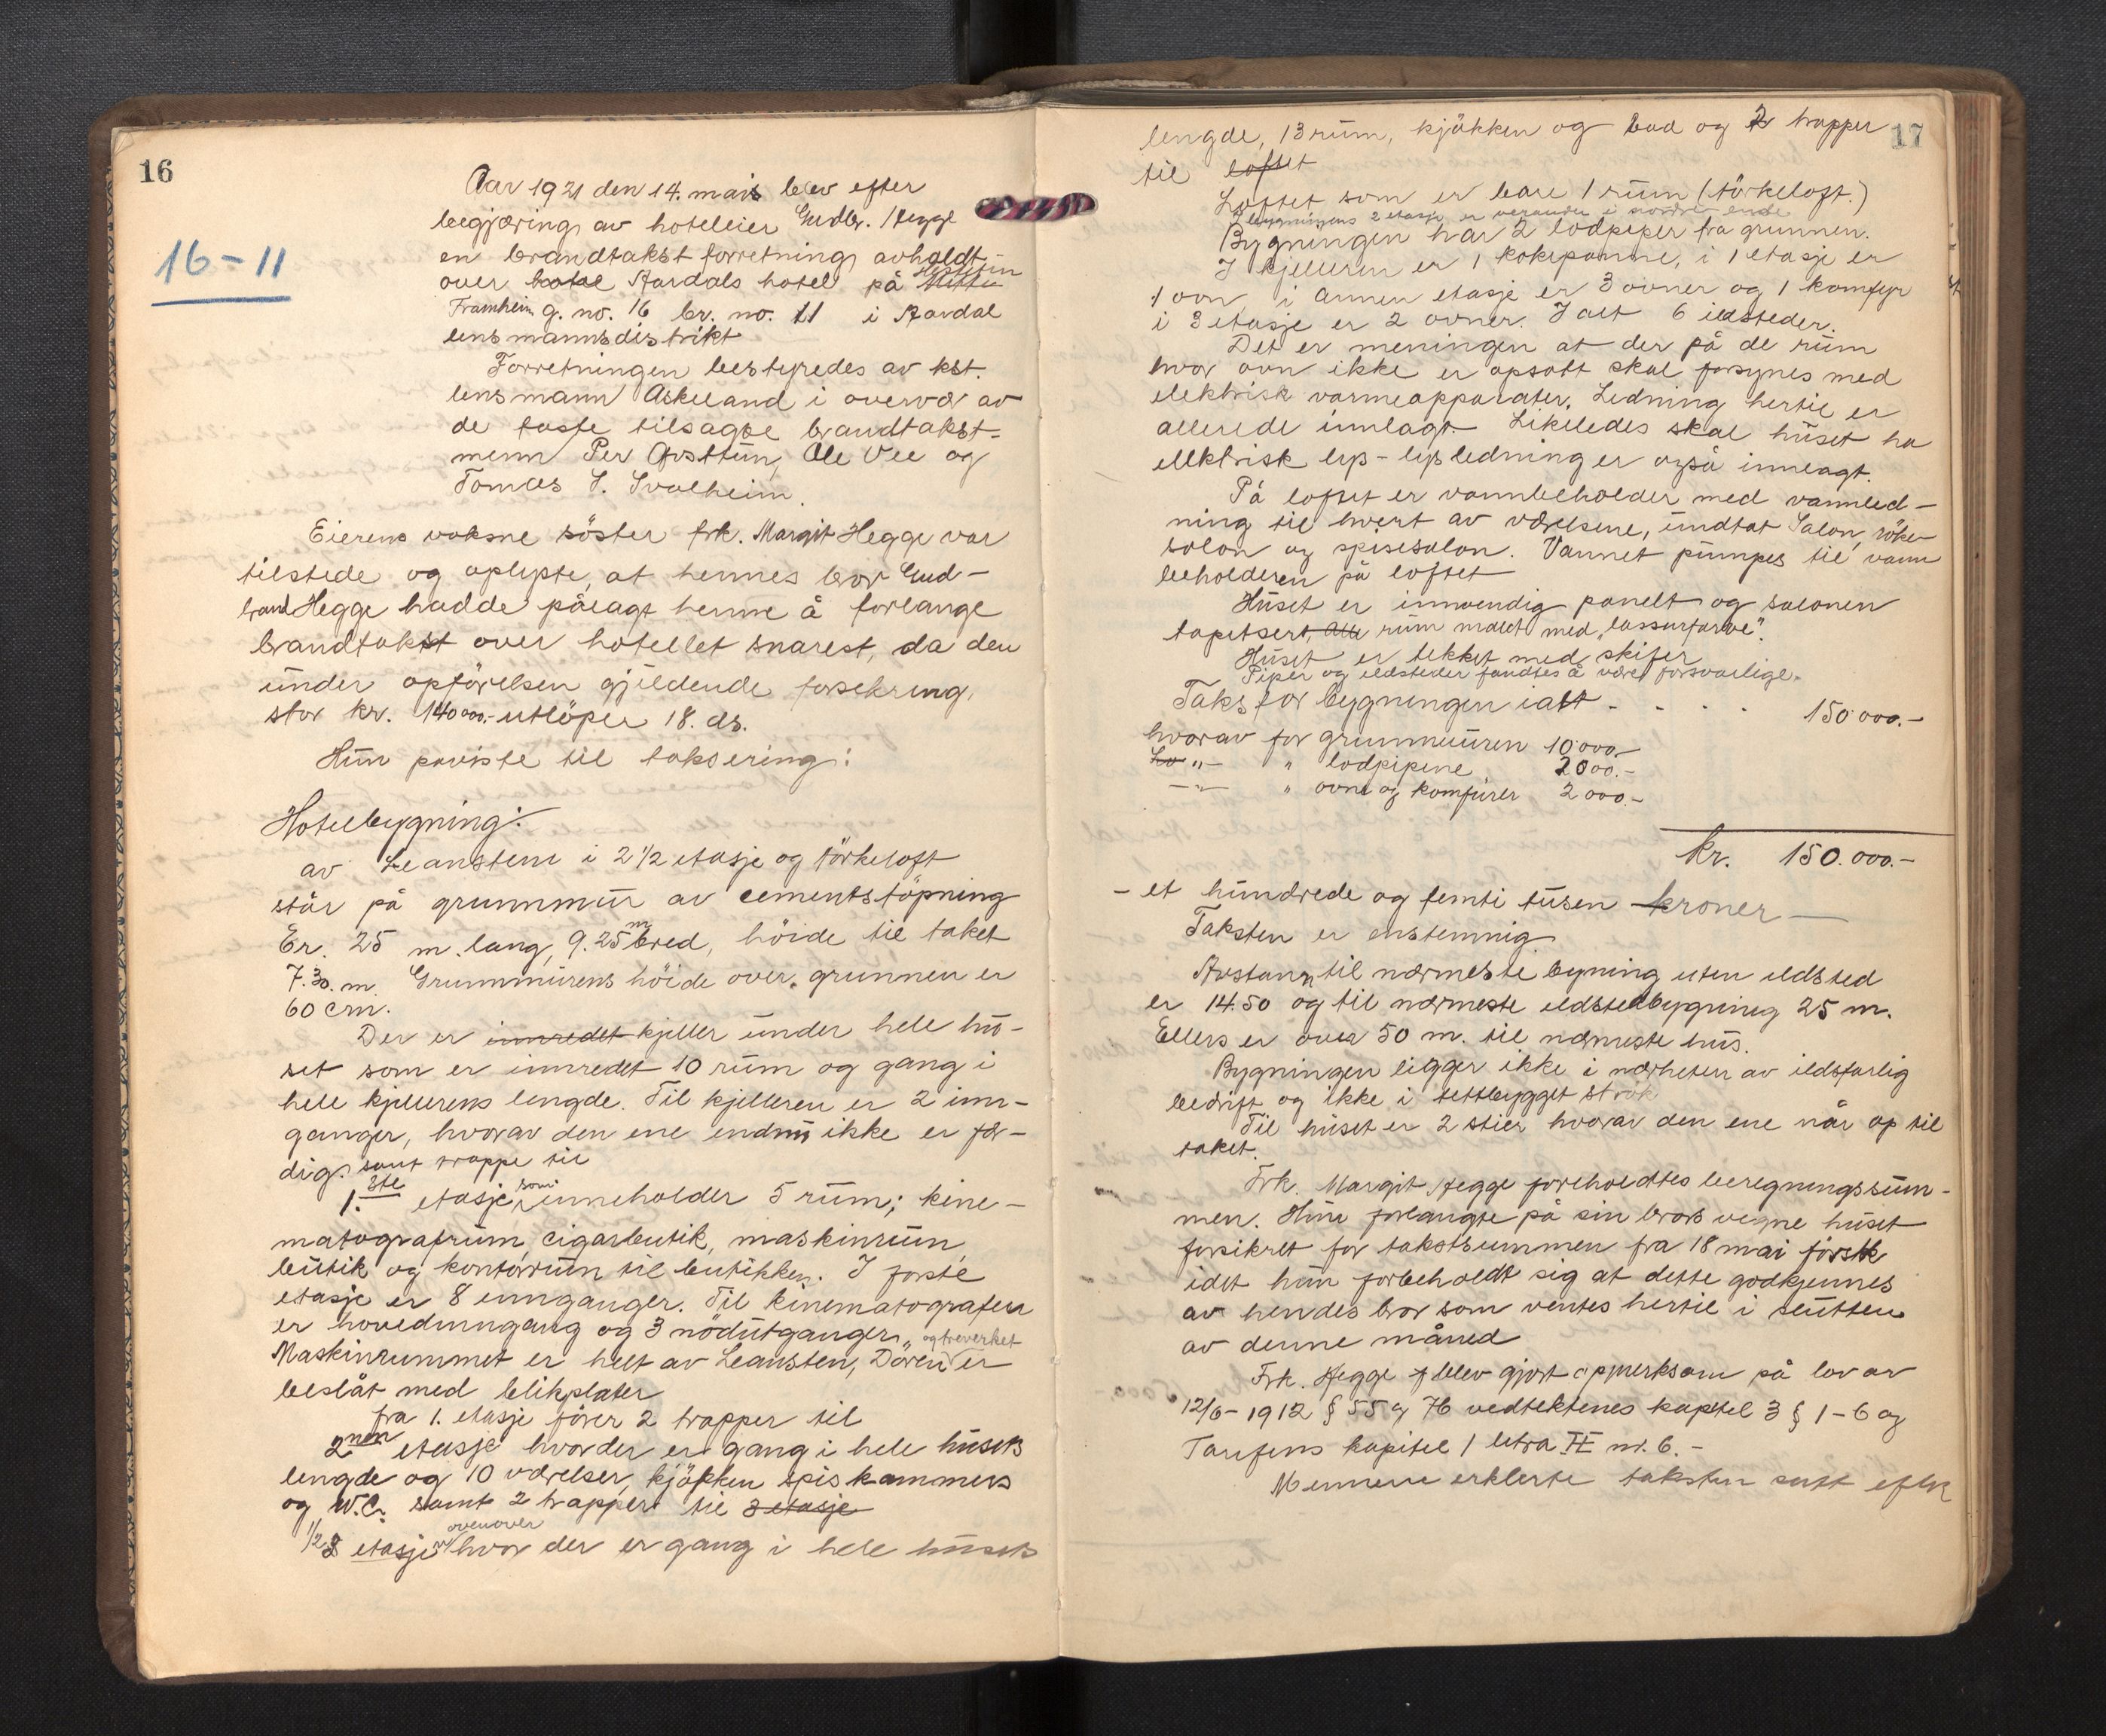 16
16-11
Aar 1921 den 14. mais blev efter
begjæring av hoteleier Gudbr. Hegge
en brandtakst forretning avholdt
over hotel Aardals hotel på
Framheim g. no. 16 br. no. 11 i Aardal
lensmannsdistrikt
Forretningen bestyredes av kst.
lensmann Askeland i overvær av
de faste tilsagte brandtakst-
menn Per Ofsttun, Ole Vee og
Tomas S. Svalheim.
Eierens voksne söster frk. Margit Hegge var
tilstede og oplyste, at hennes bror Gud-
brand Hegge hadde pålagt henne å forlange
brandtakst over hotellet snarest, da den
under opförelsen gjeldende forsekring,
stor kr. 140000.- utlöper 18. ds.
Hun påviste til taksering:
Hotelbygning:
av Leansten i 2 1/2 etasje og törkeloft
står på grunnmur av cementstöpning
Er. 25 m. lang, 9.25 m bred, höide til taket
7.30. m. Grunnmurens höide over grunnen er
60 cm.
Der er innredet kjeller under hele hu-
set som er innredet 10 rum og gang i
hele kjellerens lengde. Til kjelleren er 2 inn-
ganger, hvorav den ene endnu ikke er fær-
dig. samt trappe til
1.ste etasje som inneholder 5 rum; kine-
matografrum, cigarbutik, maskinrum,
butik og kontorrum til butikken. I förste
etasje er 8 innganger. Til kinematografen
er hovedinngang og 3 nödutganger.
Maskinrummet er helt av Leansten, Dören og treverket er
beslåt med blikplater
fra 1. etasje förer 2 trapper til
2nen etasje hvor der er gang i hele husets
lengde og 10 værelser, kjökken spiskammers
og W.C. samt 2 trapper til 3 etasje
1/2 3 etasje ovenover hvor der er gang i hele husets
17
lengde, 13 rum, kjökken og bad og 2 trapper
til loftet
Loftet som er bare 1 rum (törkeloft.)
I bygningens 2 etasje er veranda i nordre ende
Bygningen har 2 lodpiper fra grunnen.
I kjelleren er 1 kokepanne, i 1 etasje er
1 ovn i annen etasje er 3 ovner og 1 komfyr
i 3 etasje er 2 ovner. I alt 6 ildsteder.
Det er meningen at der på de rum
hvor ovn ikke er opsatt skal forsynes med
elektrisk varmeapparater. Ledning hertil er
allerede innlagt. Likeledes skal huset ha
elektrisk lys - lysledning er også innlagt.
På loftet er vannbeholder med vannled-
ning til hvert av værelsene, undtat Salon, röke-
salon og spisesalon. Vannet pumpes til vann
beholderen på loftet
Huset er innvendig panelt og salonen
tapetsert, alle rum malet med "lassurfarve".
Huset er tekket med skifer
Piper og ildsteder fandtes å være forsvarlige.
Takst for bygningen ialt - - - - 150'000.-
hvorav for grunnmuren 10'000.-
-"- " lodpipene 2000.-
-"- " ovne og komfurer 2000.-
kr. 150.000.-
- et hundrede og femti tusen kroner -
Taksten er enstemmig.
Avstann til nærmeste bygning uten ildsted
er 14.50 og til nærmeste ildstedbygning 25 m.
Ellers er over 50 m. til nærmeste hus.
Bygningen ligger ikke i nærheten av ildsfarlig
bedrift og ikke i tettbygget strök
Til huset er 2 stier hvorav den ene når op til
taket.
Frk. Margit Hegge foreholdtes beregningssum-
men. Hun forlangte på sin brors vegne huset
forsikret for takstsummen fra 18 mai förstk
idet hun forbeholdt sig at dette godkjennes
av hendes bror som ventes hertil i slutten
av denne måned
Frk. Hegge blev gjort opmerksom på lov av
12/6-1912 § 55 og 76 vedtektenes kapitel 3 § 1-6 og
Tarifens kapitel 1 letra II nr. 6.-
Mennene erklerte taksten satt efter